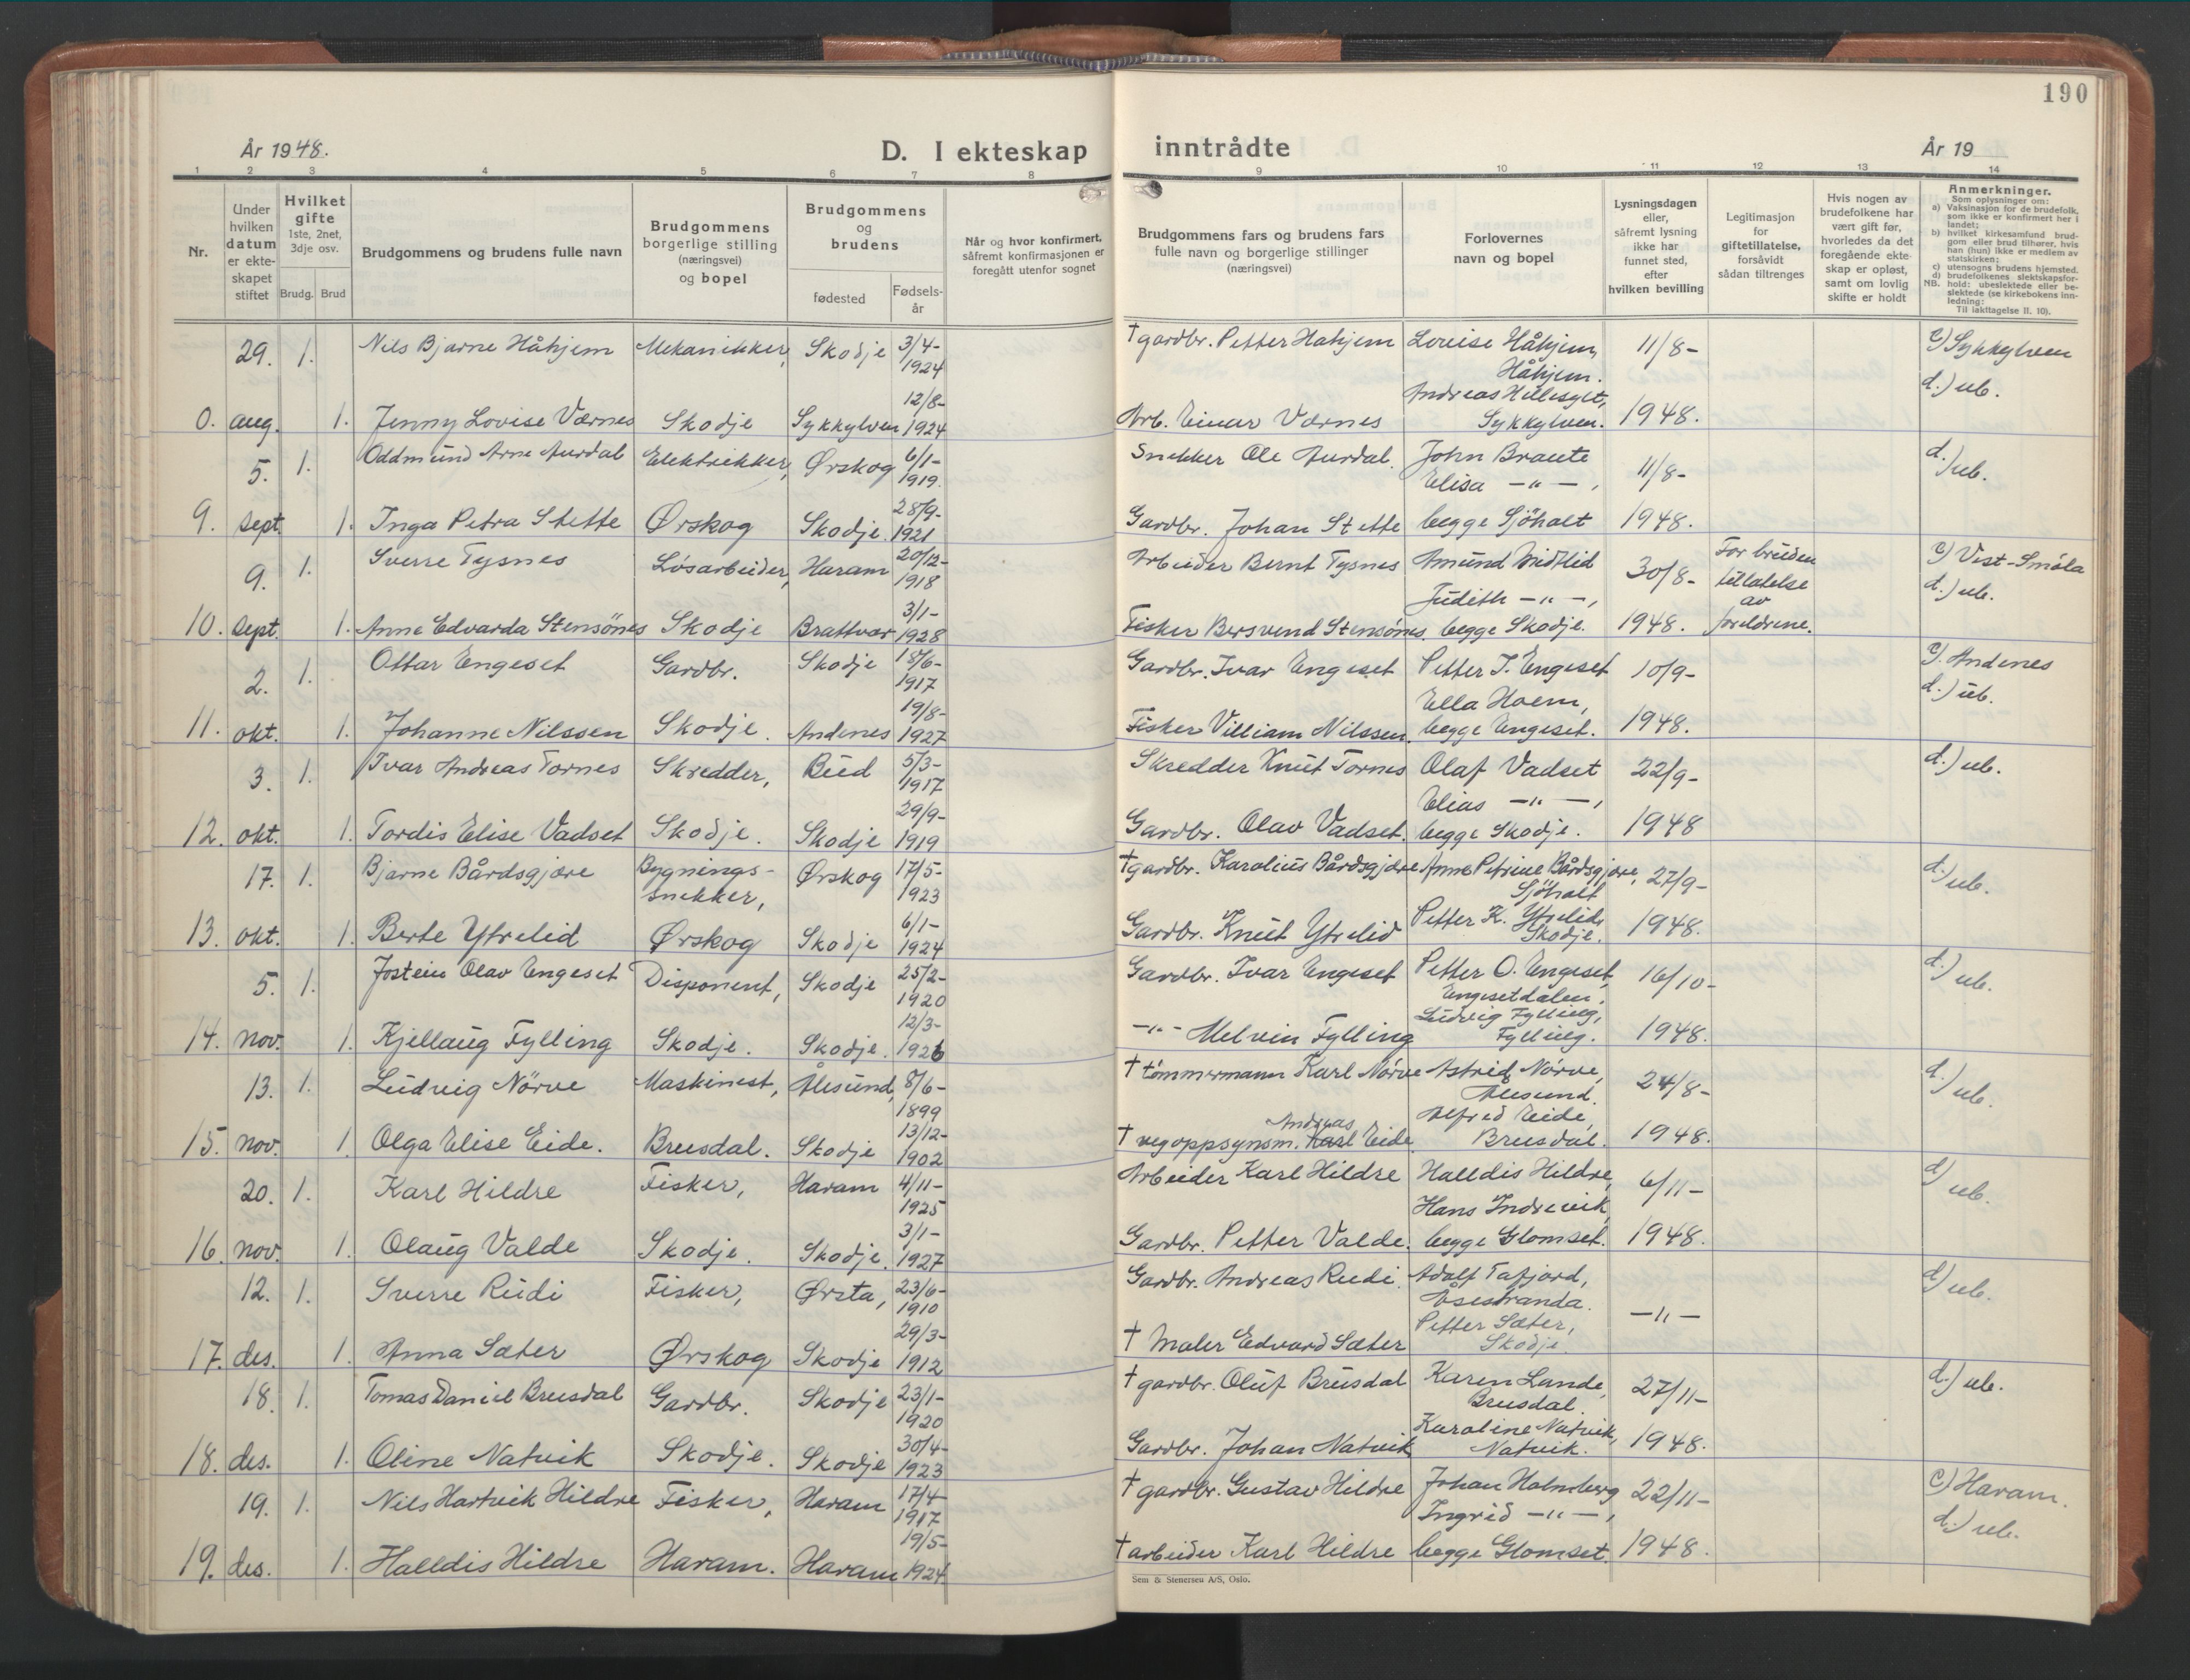 190
År 1948.
D. I ekteskap inntrådte
År 19
1 2 3 4 5 6 7 8 9 10 11 12 13 14
Nr.
Under hvilken datum er ekteskapet stiftet
Hvilket gifte 1ste, 2net, 3dje osv.
Brudg. Brud
Brudgommens og brudens fulle navn
Brudgommens borgerlige stilling (næringsvei) og bopel
Brudgommens og brudens
fødested
Fødselsår
Når og hvor konfirmert, såfremt konfirmasjonen er foregått utenfor sognet
Brudgommens fars og brudens fars fulle navn og borgerlige stillinger (næringsvei)
Forlovernes navn og bopel
Lysningsdagen eller, såfremt lysning ikke har funnet sted, efter hvilken bevilling
Legitimasjon for giftetillatelse, forsåvidt sådan tiltrenges
Hvis nogen av brudefolkene har vært gift før, hvorledes da det foregående ekteskap er opløst, samt om lovlig skifte er holdt
Anmerkninger.
Som oplysninger om:
a) Vaksinasjon for de brudefolk, som ikke er konfirmert her i landet;
b) hvilket kirkesamfund brudgom eller brud tilhører, hvis han (hun) ikke er medlem av statskirken;
c) utensogns brudens hjemsted.
d) brudefolkenes slektskapsforhold: ubeslektede eller beslektede (se kirkebokens innledning:
NB.
Til iakttagelse II. 10).
29. 1. Nils Bjarne Håhjem Mekanikker, Skodje 3/4-1924 † gardbr. Petter Håhjem Louise Håhjem, Håhjem. 11/8- c) Sykkylven d.) ub.
0. aug. 1. Jenny Lovise Værnes Skodje Sykkylven 12/8-1924 Arb. Einar Værnes Andreas Hillesgt, Sykkylven. 1948.
5. 1. Oddmund Arne Aurdal Elektrikker, Ørskog 6/1-1919. Snekker Ole Aurdal. John Braute Elisa -"-, 11/8- d.) ub.
9. sept. 1. Inga Petra Stette Ørskog Skodje. 28/9-1921 Gardbr. Johan Stette begge Sjöholt 1948.
9. 1. Sverre Tysnes Løsarbeider, Haram 20/12-1918 Arbeider Bernt Tysnes Amund Midtlid Judith -"-, 30/8- For bruden tillatelse av foreldrene. c) Vest-Smøla d.) ub.
10. sept. 1. Anne Edvarda Stensönes Skodje Brattvær 3/1-1928 Fisker Bersvend Stensönes. begge Skodje. 1948.
2. 1. Ottar Engeset Gardbr. Skodje 18/6-1917 Gardbr. Ivar Engeset Petter I. Engeset Ella Hoem, 10/9- c). Andenes d.) ub.
11. okt. 1. Johanne Nilssen Skodje. Andenes 19/8-1927 Fisker Villiam Nilssen. begge Engeset. 1948.
3. 1. Ivar Andreas Tornes Skredder, Bud 5/3-1917 Skredder Knut Tornes Olaf Vadset Elias -"-, 22/9- d.) ub.
12. okt. 1. Tordis Elise Vadset Skodje. Skodje 29/9-1919 Gardbr. Olav Vadset. begge Skodje. 1948
17. 1. Bjarne Bårdsgjære Bygnings-snekker, Ørskog 17/5-1923 † gardbr. Karolius Bårdsgjære Anne Petrine Bårdsgjære, Sjöholt 27/9- d.) ub.
13. okt. 1. Berte Ytrelid Ørskog Skodje 6/1-1924 Gardbr. Knut Ytrelid Petter K. Ytrelid, Skodje. 1948.
5. 1. Jostein Olav Engeset Disponent, Skodje 25/2-1920 Gardbr. Ivar Engeset Petter O. Engeset, Engesetdalen. 16/10- d.) ub.
14. nov. 1. Kjellaug Fylling Skodje. Skodje. 12/3-1926 -"- Melvin Fylling Ludvig Fylling, Fylling. 1948.
13. 1. Ludvig Nörve Maskinest, Ålesund, 8/6-1899 † tömmermann Karl Nörve Astrid Nörve, Ålesund. 24/8- d.) ub.
15. nov. 1. Olga Elise Eide. Brusdal. Skodje 13/12-1902 † vegoppsynsm. Karl Andreas Eide Alfred Eide, Brusdal. 1948.
20. 1. Karl Hildre Fisker, Haram 4/11-1925 Arbeider Karl Hildre Halldis Hildre, 6/11- d) ub.
16. nov. 1. Olaug Valde Skodje. Skodje. 3/1-1927 Gardbr. Petter Valde. Hans Indrevik, begge Glomset. 1948.
12. 1. Sverre Rudi Fisker, Ørsta, 23/6-1910 Gardbr. Andreas Rudi. Adolf Tafjord, Åsestranda. -"- d) ub.
17. des. 1. Anna Sæter Ørskog Skodje 29/3-1912 † Maler Edvard Sæter Petter Sæter, Skodje
18. 1. Tomas Daniel Brusdal Gardbr. Skodje 23/1-1920 † gardbr. Oluf Brusdal Karen Lande, Brusdal. 27/11- d.) ub.
18. des. 1. Oline Natvik Skodje. Skodje 30/4-1923 Gardbr. Johan Natvik Karoline Natvik, Natvik. 1948.
19. 1. Nils Hartvik Hildre Fisker, Haram 17/4-1917 † gardbr. Gustav Hildre Johan Holmberg Ingrid -"-, 22/11- c) Haram. d.) ub.
19. des. 1. Halldis Hildre Haram. Haram 19/5-1924 † arbeider Karl Hildre begge Glomset. 1948.
Sem & Stenersen A/S, Oslo.